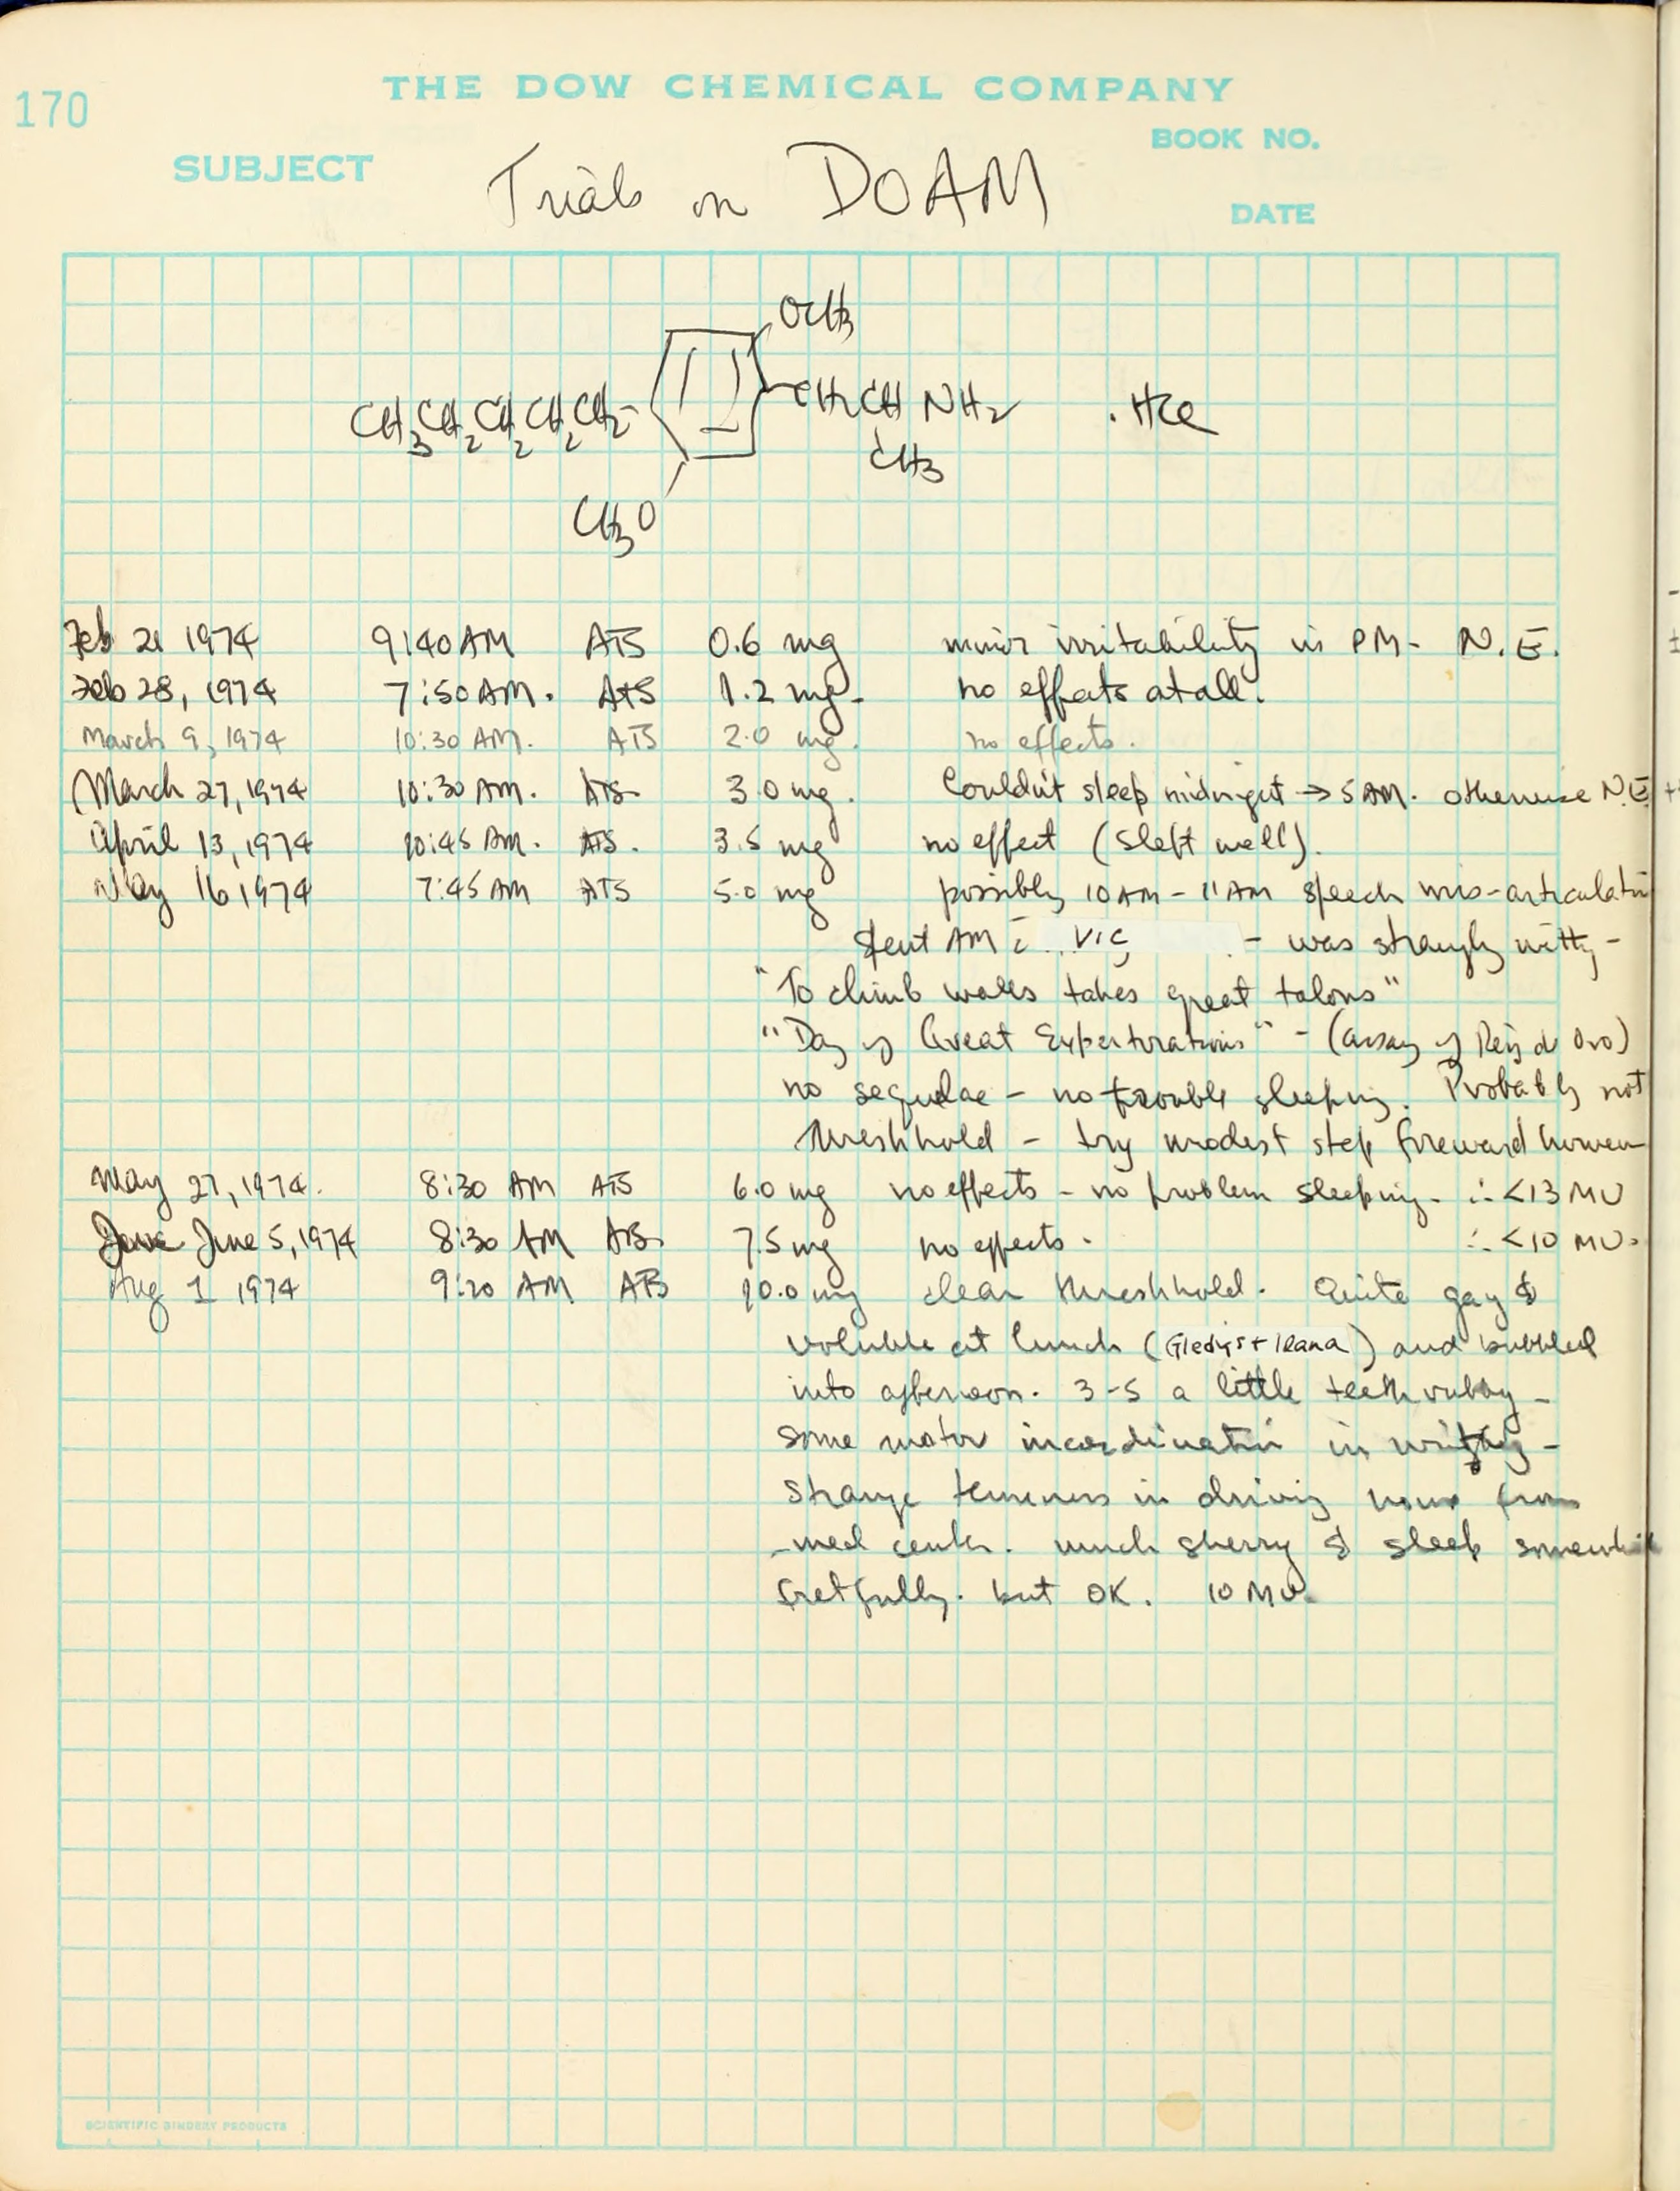 170
THE DOW CHEMICAL COMPANY
BOOK NO.
SUBJECT Trials on DOAM
DATE
OCH3
CH3CH2CH2CH2CH2- CH2CH NH2 . HCl
CH3
CH3O
Feb 21 1974 9:40 AM ATS 0.6 mg minor irritability in PM - N.E.
Feb 28, 1974 7:50 AM. ATS 1.2 mg. no effects at all.
March 9, 1974 10:30 AM. ATS 2.0 mg. no effects.
March 27, 1974 10:30 AM. ATS 3.0 mg. Couldn't sleep midnight → 5 AM. otherwise N.E.
April 13, 1974 10:45 AM. ATS. 3.5 mg no effect (slept well).
May 16 1974 7:45 AM ATS 5.0 mg possibly 10 AM - 11 AM speech mis-articulation
Spent AM c̄ Vic - was strangely witty -
"To climb walls takes great talons"
"Day of Great Expectorations" - (assay of Rey d Oro)
no sequelae - no trouble sleeping. Probably not
threshhold - try modest step foreward however
May 27, 1974. 8:30 AM ATS 6.0 mg no effects - no problem sleeping. ∴ <13 MU
June 5, 1974 8:30 AM ATS 7.5 mg no effects. ∴ <10 MU.
Aug 1 1974 9:20 AM ATS 10.0 mg clear threshhold. Quite gay &
voluble at lunch (Gledys + Ilana) and bubbled
into afternoon. 3-5 a little teeth rubby -
some motor incoordination in writing -
strange tenseness in driving home from
med center. much sherry & sleep somewhat
fretfully. but OK. 10 MU.
SCIENTIFIC BINDERY PRODUCTS